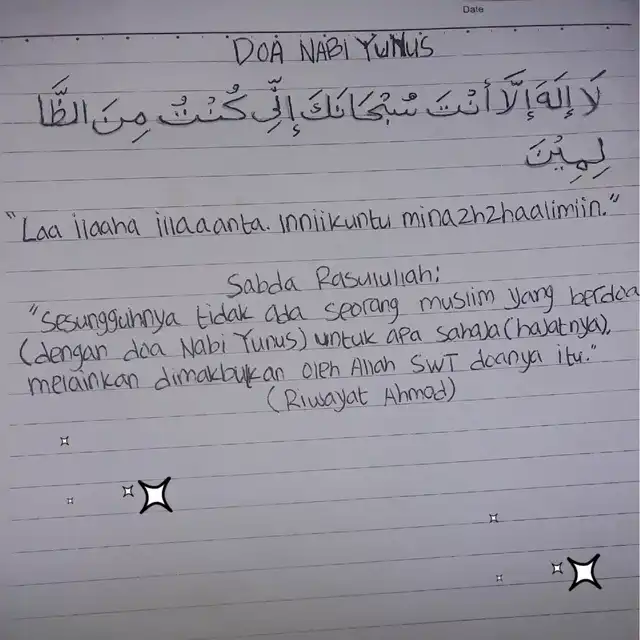 Date
DOA NABI YUNUS
لَا إِلَهَ إِلَّا أَنْتَ سُبْحَانَكَ إِنِّي كُنْتُ مِنَ الظَّا
لِمِيْنَ
"Laa ilaaha illaaanta. Inniikuntu minazhzhaalimiin."
Sabda Rasulullah:
"Sesungguhnya tidak ada seorang muslim yang berdoa
(dengan doa Nabi Yunus) untuk apa sahaja (hajatnya),
melainkan dimakbulkan oleh Allah SWT doanya itu."
(Riwayat Ahmad)